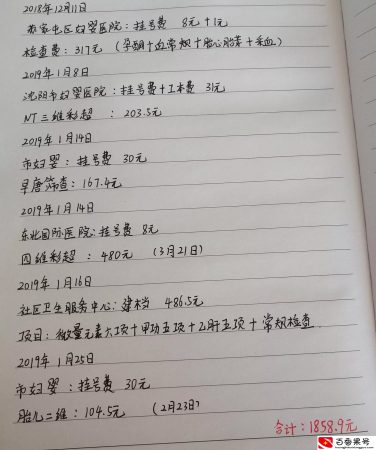 2018年12月11日
苏家屯区妇婴医院：挂号费 8元+1元
检查费：317元 （孕酮+血常规+胎心胎芽+采血）
2019年1月8日
沈阳市妇婴医院：挂号费+工本费 31元
NT三维彩超 ：203.5元
2019年1月14日
市妇婴：挂号费 30元
早唐筛查：167.4元
2019年1月14日
东北国际医院：挂号费 8元
四维彩超 ：480元 （3月21日）
2019年1月16日
社区卫生服务中心：建档 486.5元
项目：微量元素六项+甲功五项+乙肝五项+常规检查
2019年1月25日
市妇婴：挂号费 30元
胎儿二维：104.5元 （2月23日）
合计：1858.9元